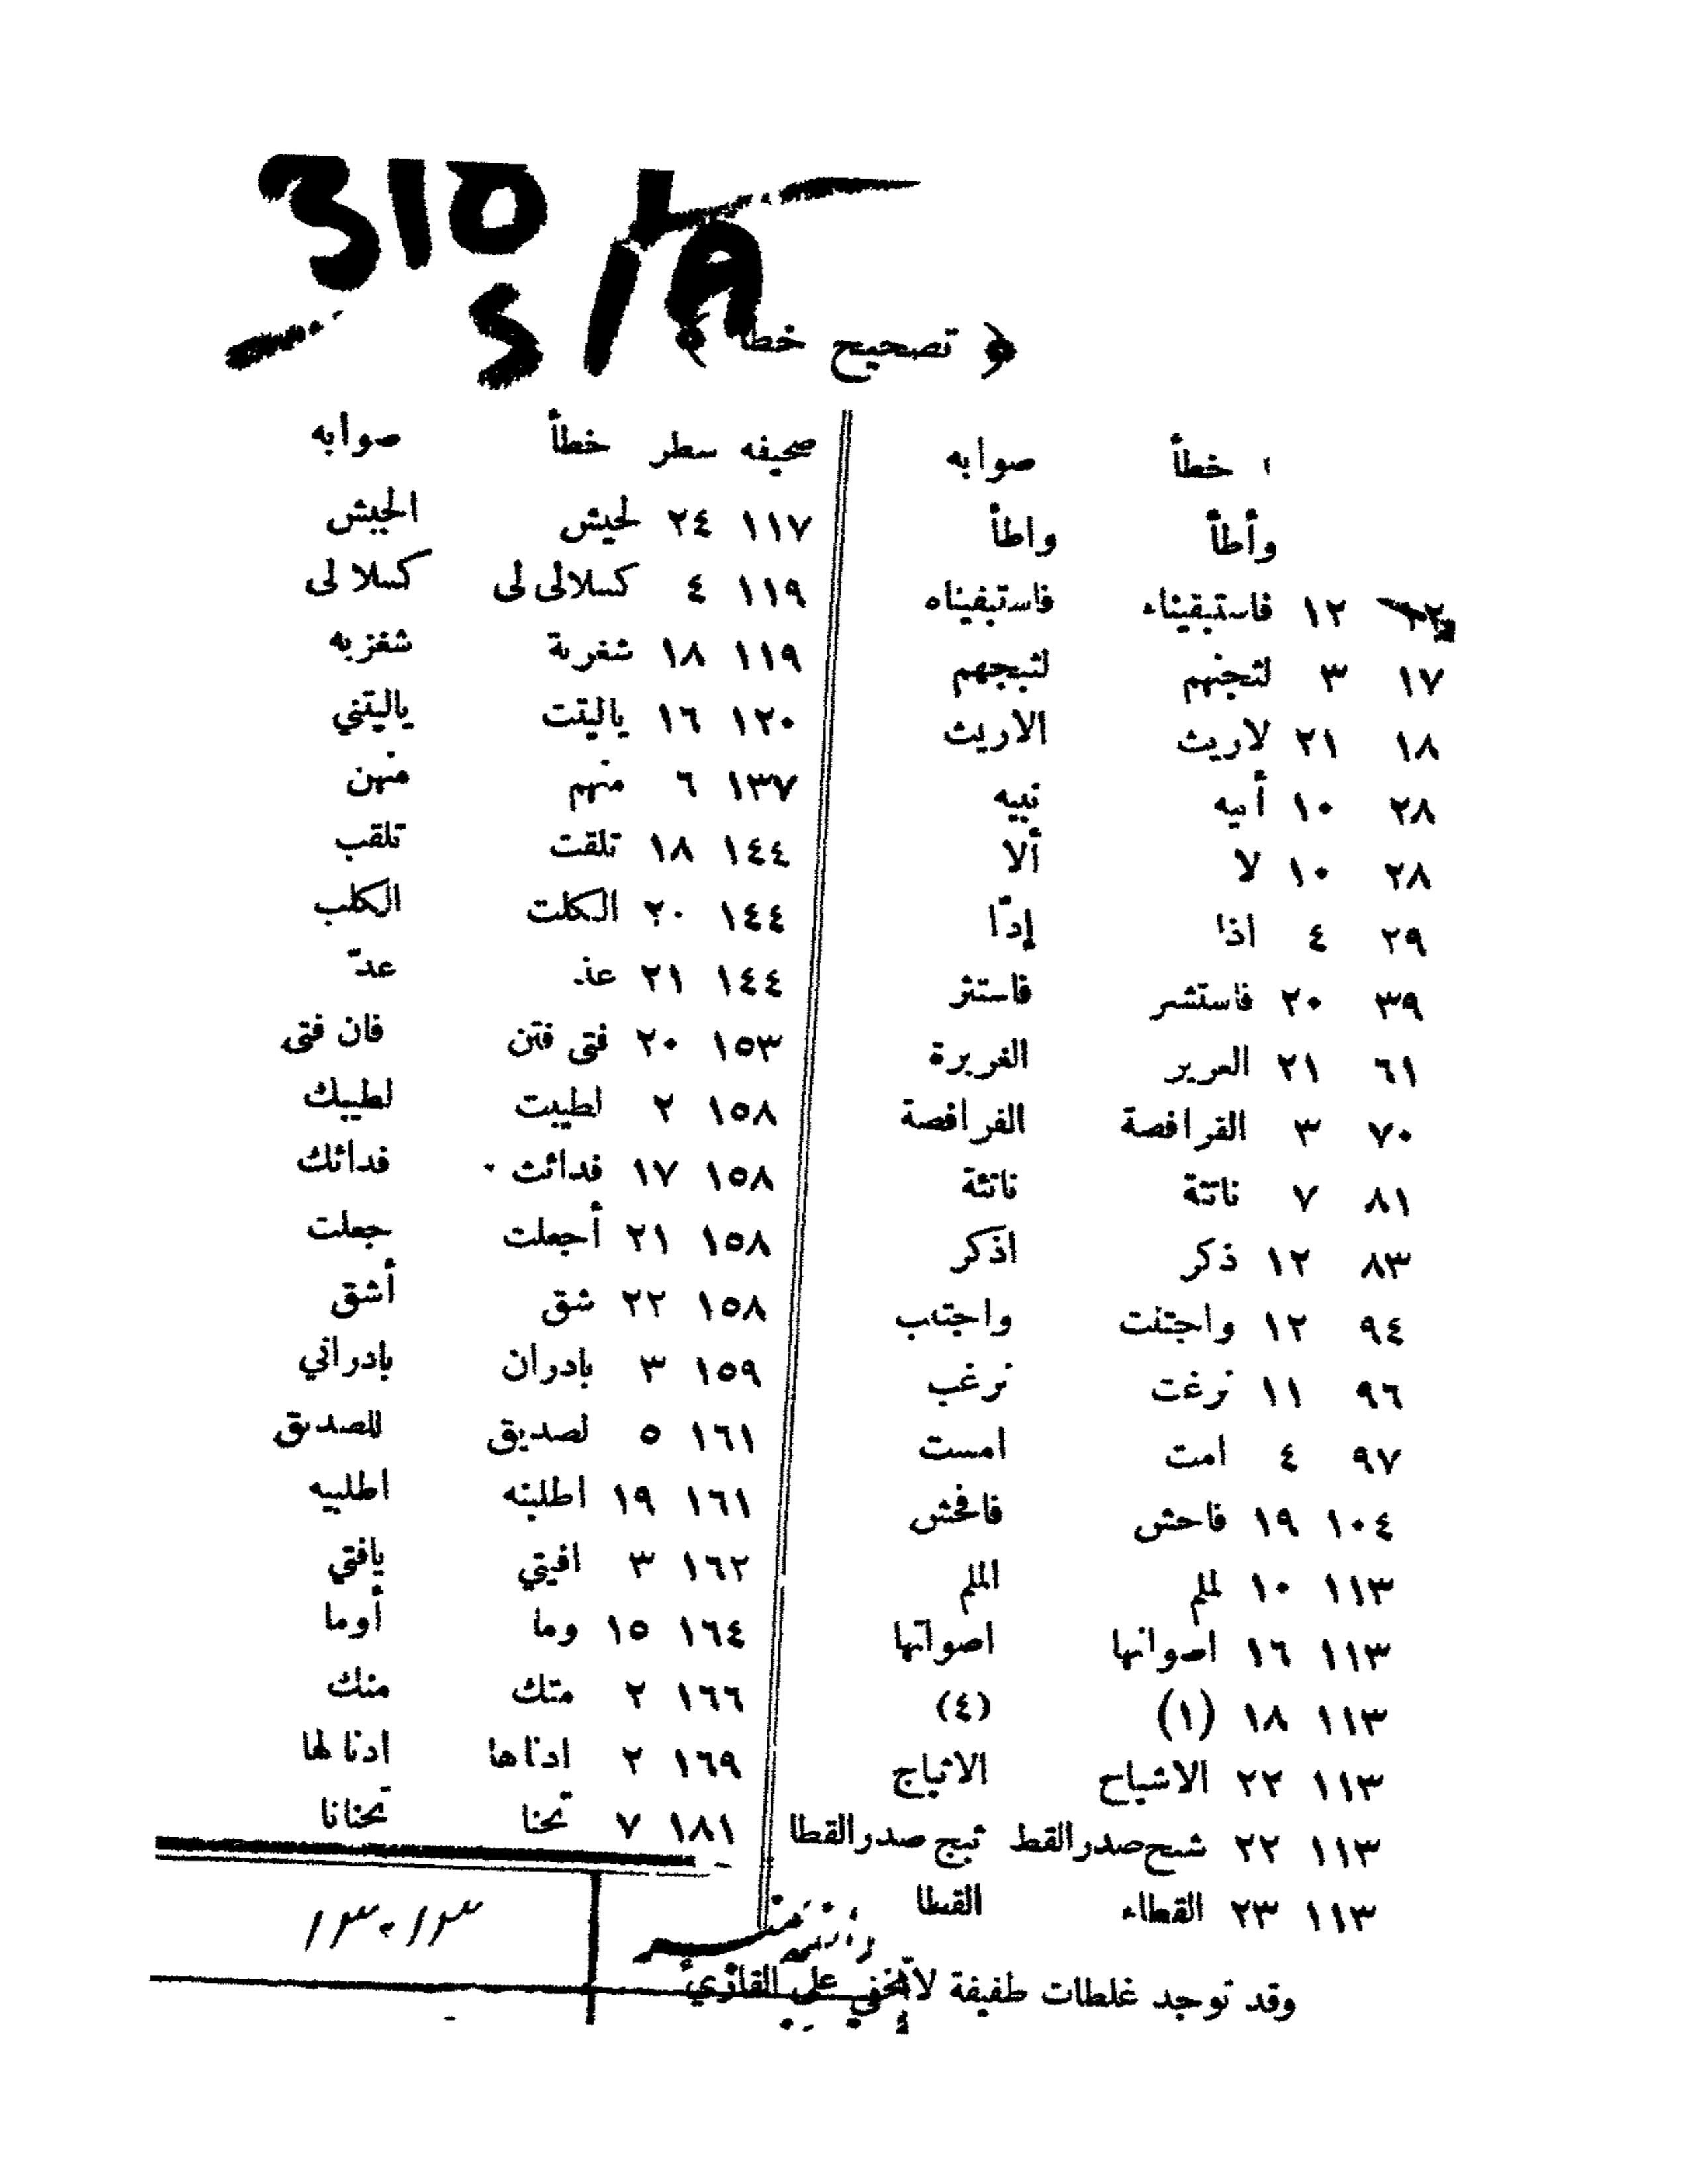 310
S / A
﴿ تصحيح خطأ ﴾
خطأ صوابه
وأطأ واطأ
١٢ فاستبقيناء فاستبفيناه
١٧ ٣ لتجنهم لتبجهم
١٨ ٢١ لاريث الاريث
٢٨ ١٠ أبيه نبيه
٢٨ ١٠ لا ألا
٢٩ ٤ اذا إدّا
٣٩ ٢٠ فاستشر فاستنثر
٦١ ٢١ العرير الغريرة
٧٠ ٣ القرافصة الفرافصة
٨١ ٧ ناتئة ناتئة
٨٣ ١٢ ذكر اذكر
٩٤ ١٢ واجتنت واجتنب
٩٦ ١١ نرغت نرغب
٩٧ ٤ امت امست
١٠٤ ١٩ فاحش فافحش
١١٣ ١٠ لملم الملم
١١٣ ١٦ اصوانها اصواتها
١١٣ ١٨ (١) (٤)
١١٣ ٢٢ الاشباح الاثباج
١١٣ ٢٢ شبح صدر القط ثبج صدر القطا
١١٣ ٢٣ القطاء القطا
صحيفه سطر خطأ صوابه
١١٧ ٢٤ لجيش الجيش
١١٩ ٤ كسلالى لى كسلا لى
١١٩ ١٨ شغرية شغزبه
١٢٠ ١٦ ياليتت ياليتني
١٣٧ ٦ منهم منهن
١٤٤ ١٨ تلقت تلقب
١٤٤ ٢٠ الكلت الكلب
١٤٤ ٢١ عذ عدّ
١٥٣ ٢٠ فتى فتن فان فتى
١٥٨ ٢ لطيبت لطيبك
١٥٨ ١٧ فدائت فدائك
١٥٨ ٢١ أجعلت جعلت
١٥٨ ٢٢ شق أشق
١٥٩ ٣ بادران بادراني
١٦١ ٥ لصديق للصديق
١٦١ ١٩ اطلبنه اطلبيه
١٦٢ ٣ افيتي يافتي
١٦٤ ١٥ وما أوما
١٦٦ ٢ متك منك
١٦٩ ٢ اداها ادنا لها
١٨١ ٧ تحنا تحنانا
وقد توجد غلطات طفيفة لاتخفى على القارئ
١٣٠١٣